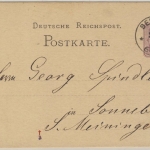 DEUTSCHE REICHSPOST.
POSTKARTE.
Herrn Georg Spindler
in Sonneberg
S. Meiningen